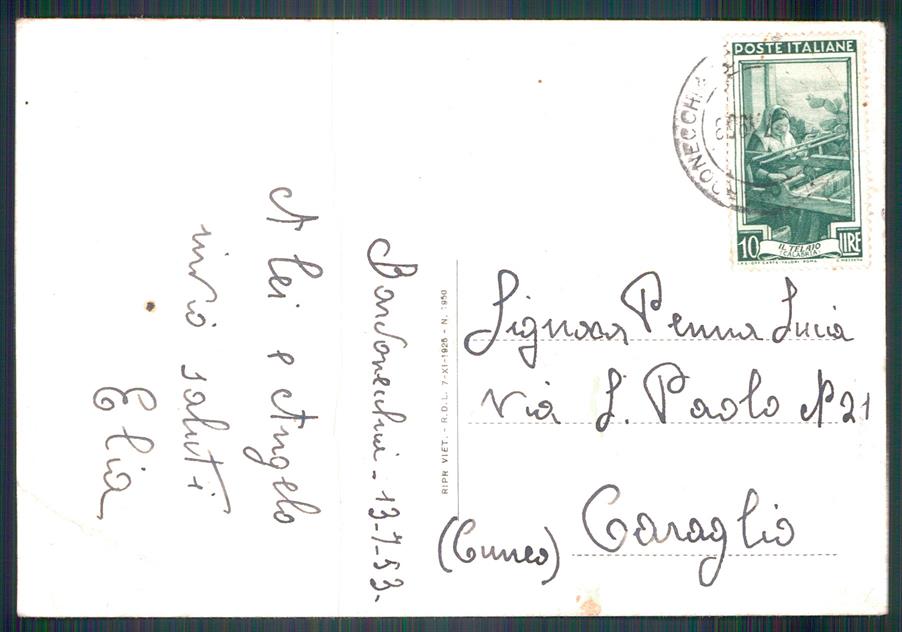 Bardonecchia - 13-7-53-
A lei e Angelo
invio saluti
Elia
RIPR. VIET. - R.D.L. 7-XI-1925 - N. 1950
POSTE ITALIANE
10 LIRE
IL TELAIO
(CALABRIA)
Signora Penna Lucia
Via S. Paolo N 21
Caraglio
(Cuneo)